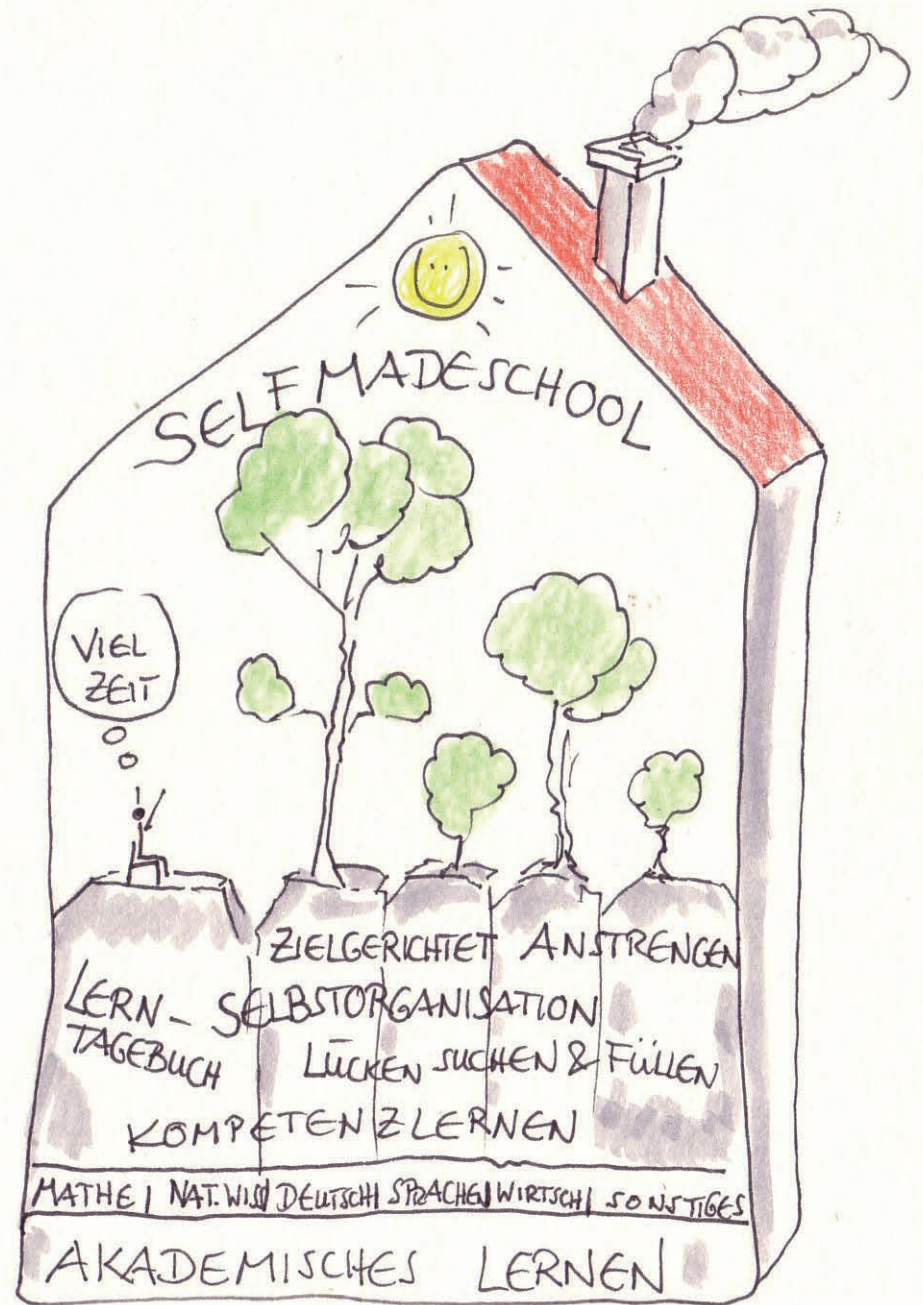 SELFMADESCHOOL
VIEL
ZEIT
ZIELGERICHTET ANSTRENGEN
LERN-
TAGEBUCH
SELBSTORGANISATION
LÜCKEN SUCHEN & FÜLLEN
KOMPETENZLERNEN
MATHE | NAT.WISS | DEUTSCH | SPRACHEN | WIRTSCH | SONSTIGES
AKADEMISCHES LERNEN